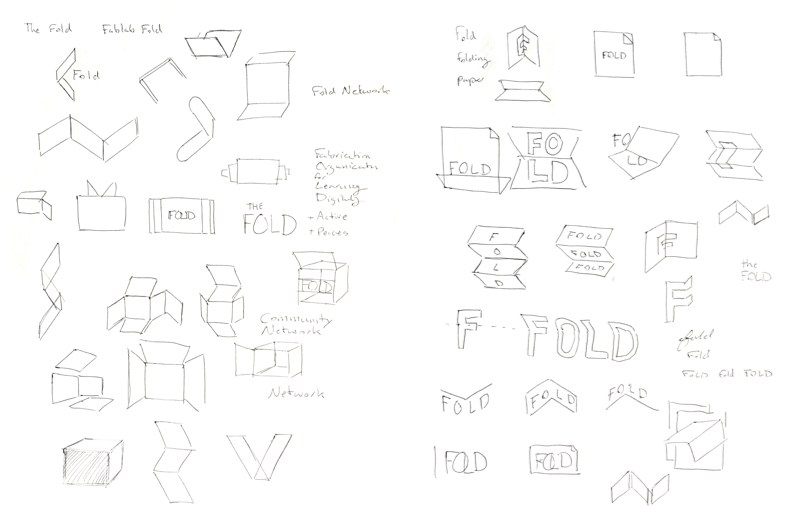 The Fold Fablab Fold
Fold
Fold Network
Fabrication
Organization
for
Learning
Digitally
+ Active
FOLD
THE
FOLD
FOLD
Community
Network
Network
Fold
folding
paper
F
FOLD
FOLD
FO
LD
FO
LD
F
O
L
D
FOLD
FOLD
FOLD
F
F
the
FOLD
F
FOLD
fold
Fold
FOLD fold FOLD
FOLD
FOLD
FOLD
FOLD
FOLD